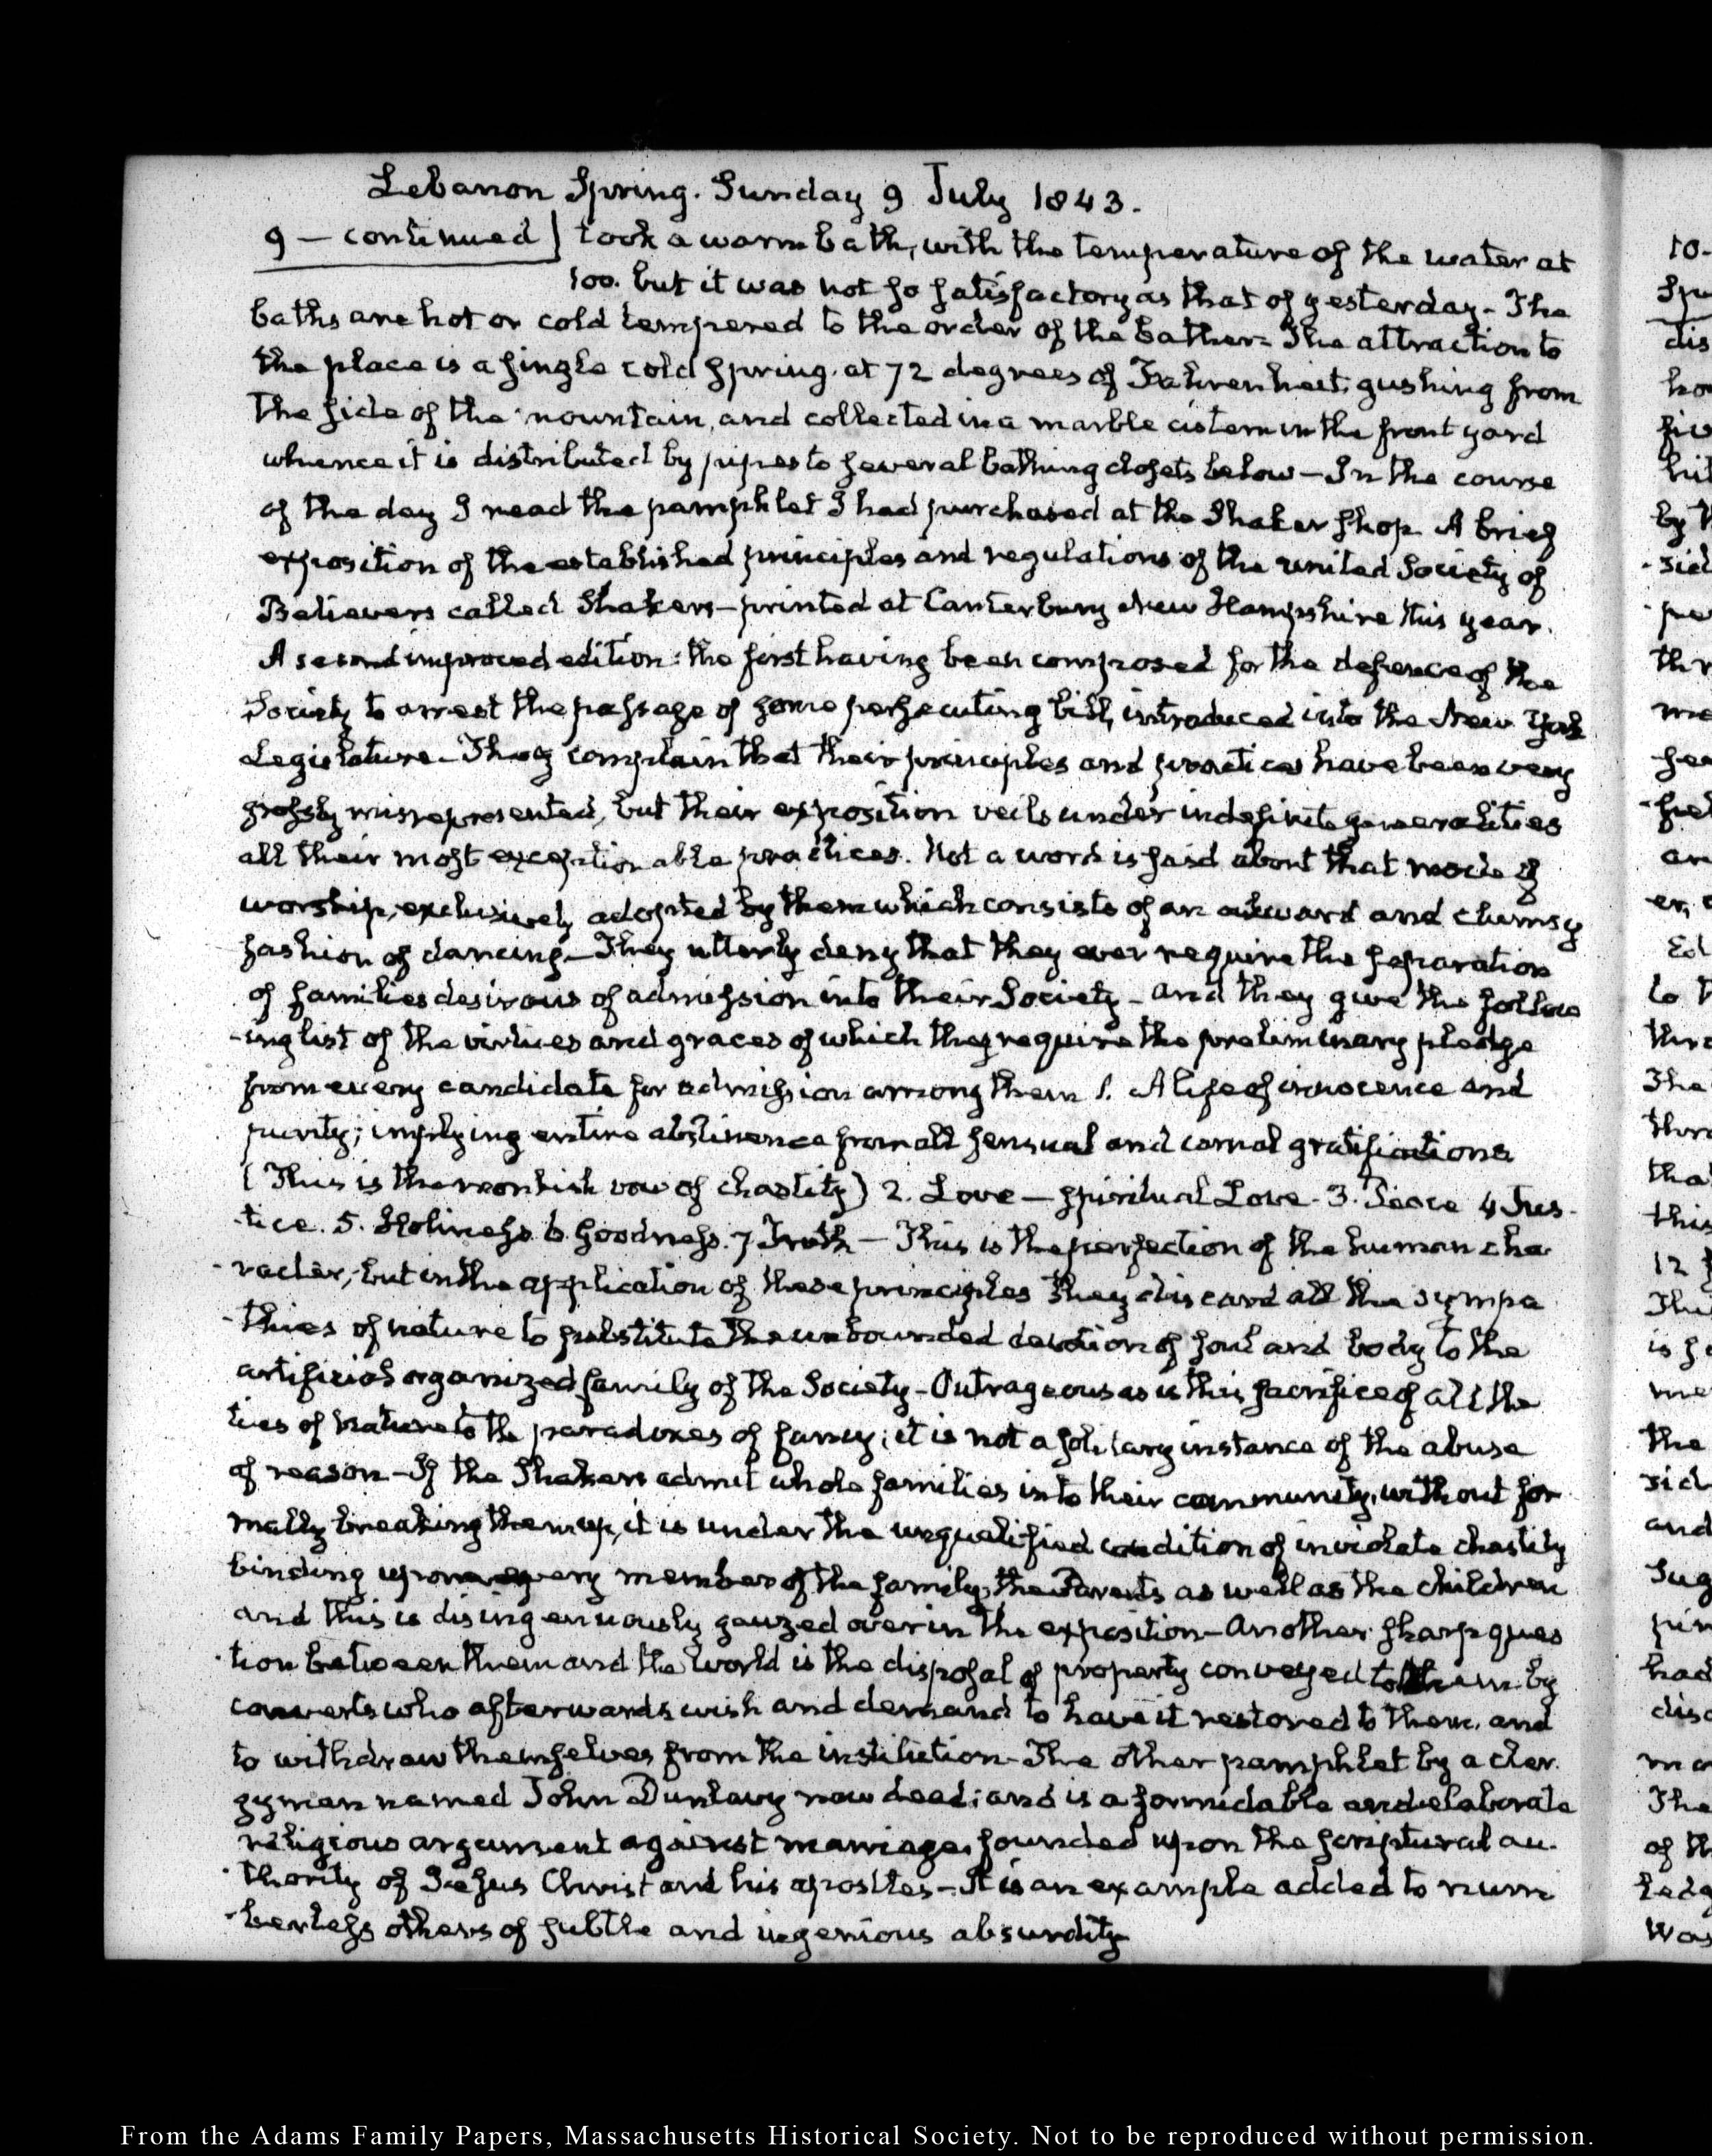 Lebanon Spring. Sunday 9 July 1843.
9 — continued] took a warm bath, with the temperature of the water at
100. but it was not so satisfactory as that of yesterday - The
baths are hot or cold tempered to the order of the bather - The attraction to
the place is a single cold spring. at 72 degrees of Fahrenheit, gushing from
the side of the mountain, and collected in a marble cistern in the front yard
whence it is distributed by pipes to several bathing closets below — In the course
of the day I read the pamphlet I had purchased at the Shaker shop. A brief
exposition of the established principles and regulations of the united Society of
Believers called Shakers — printed at Canterbury New Hampshire this year.
A second improved edition: the first having been composed for the defence of the
Society to arrest the passage of some persecuting bill, introduced into the New York
Legislature - They complain that their principles and practices have been very
grossly misrepresented, but their exposition veils under indefinite generalities
all their most exceptionable practices. Not a word is said about that mode of
worship, exclusively adopted by them which consists of an akward and clumsy
fashion of dancing — They utterly deny that they ever require the separation
of families desirous of admission into their Society - and they give the follow
-ing list of the virtues and graces of which they require the preliminary pledge
from every candidate for admission among them 1. A life of innocence and
purity; implying entire abstinence from all sensual and carnal gratifications
(This is the monkish vow of chastity) 2. Love — spiritual Love. 3. Peace 4 Jus-
-tice. 5. Holiness. 6. Goodness. 7 Truth — This is the perfection of the human cha
-racter, but in the application of these principles they discard all the sympa
-thies of nature to substitute the unbounded devotion of soul and body to the
artificial organized family of the Society - Outrageous as is this sacrifice of all the
ties of Nature to the paradoxes of fancy, it is not a solitary instance of the abuse
of reason - If the Shakers admit whole families into their community, without for
mally breaking them up, it is under the unqualified condition of inviolate chastity
binding upon every member of the family, the Parents as well as the children
and this is disingenuously gauzed over in the exposition - Another sharp ques
-tion between them and the World is the disposal of property conveyed to them by
converts who afterwards wish and demand to have it restored to them, and
to withdraw themselves from the institution - The other pamphlet by a cler-
gyman named John Dunlavy now dead; and is a formidable and elaborate
religious argument against marriage, founded upon the scriptural au-
-thority of Jesus Christ and his apostles - It is an example added to num
-berless others of subtle and ingenious absurdity
From the Adams Family Papers, Massachusetts Historical Society. Not to be reproduced without permission.